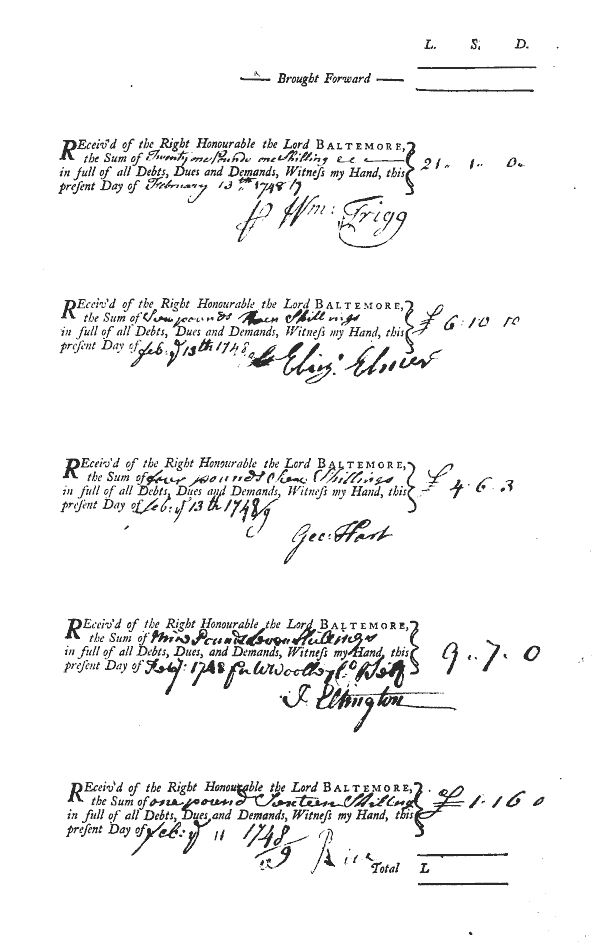 L. S. D.
Brought Forward
REceiv'd of the Right Honourable the Lord BALTEMORE,
the Sum of Twenty one Pounds one Shilling 21 .. 1 .. 0 ..
in full of all Debts, Dues and Demands, Witneſs my Hand, this
preſent Day of February 13th 1748/9
Wm: Trigg
REceiv'd of the Right Honourable the Lord BALTEMORE,
the Sum of pounds Shillings £ 6 : 10 10
in full of all Debts, Dues and Demands, Witneſs my Hand, this
preſent Day of feb: ye 13th 1748/9
Eliz: Elmer
REceiv'd of the Right Honourable the Lord BALTEMORE,
the Sum of four pounds Shillings £ 4 . 6 . 3
in full of all Debts, Dues and Demands, Witneſs my Hand, this
preſent Day of feb: ye 13th 1748/9
Geo: Hart
REceiv'd of the Right Honourable the Lord BALTEMORE,
the Sum of Nine Pounds Seven Shillings 9 .. 7 . 0
in full of all Debts, Dues, and Demands, Witneſs my Hand, this
preſent Day of Feby: 1748 for Co Self
J. Elkington
REceiv'd of the Right Honourable the Lord BALTEMORE,
the Sum of one pound Sixteen Shilling £ 1 . 16 0
in full of all Debts, Dues and Demands, Witneſs my Hand, this
preſent Day of feb: ye 11 1748/9
Rice
Total L